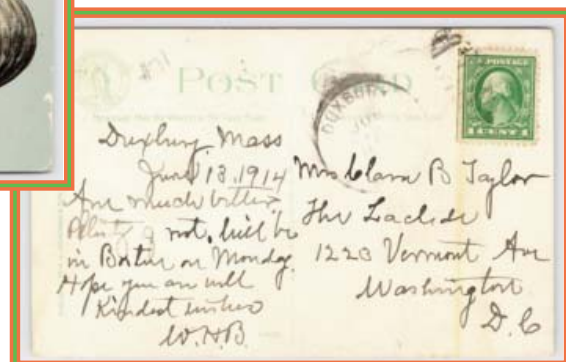 POST CARD
DUXBURY
JUN
POSTAGE
1 CENT 1
Duxbury Mass
June 13. 1914
Am much better,
not. Will be
in Boston on Monday.
Hope you are well
Kindest wishes
W.H.B.
Mrs Clara B Taylor
The
1223 Vermont Ave
Washington
D.C